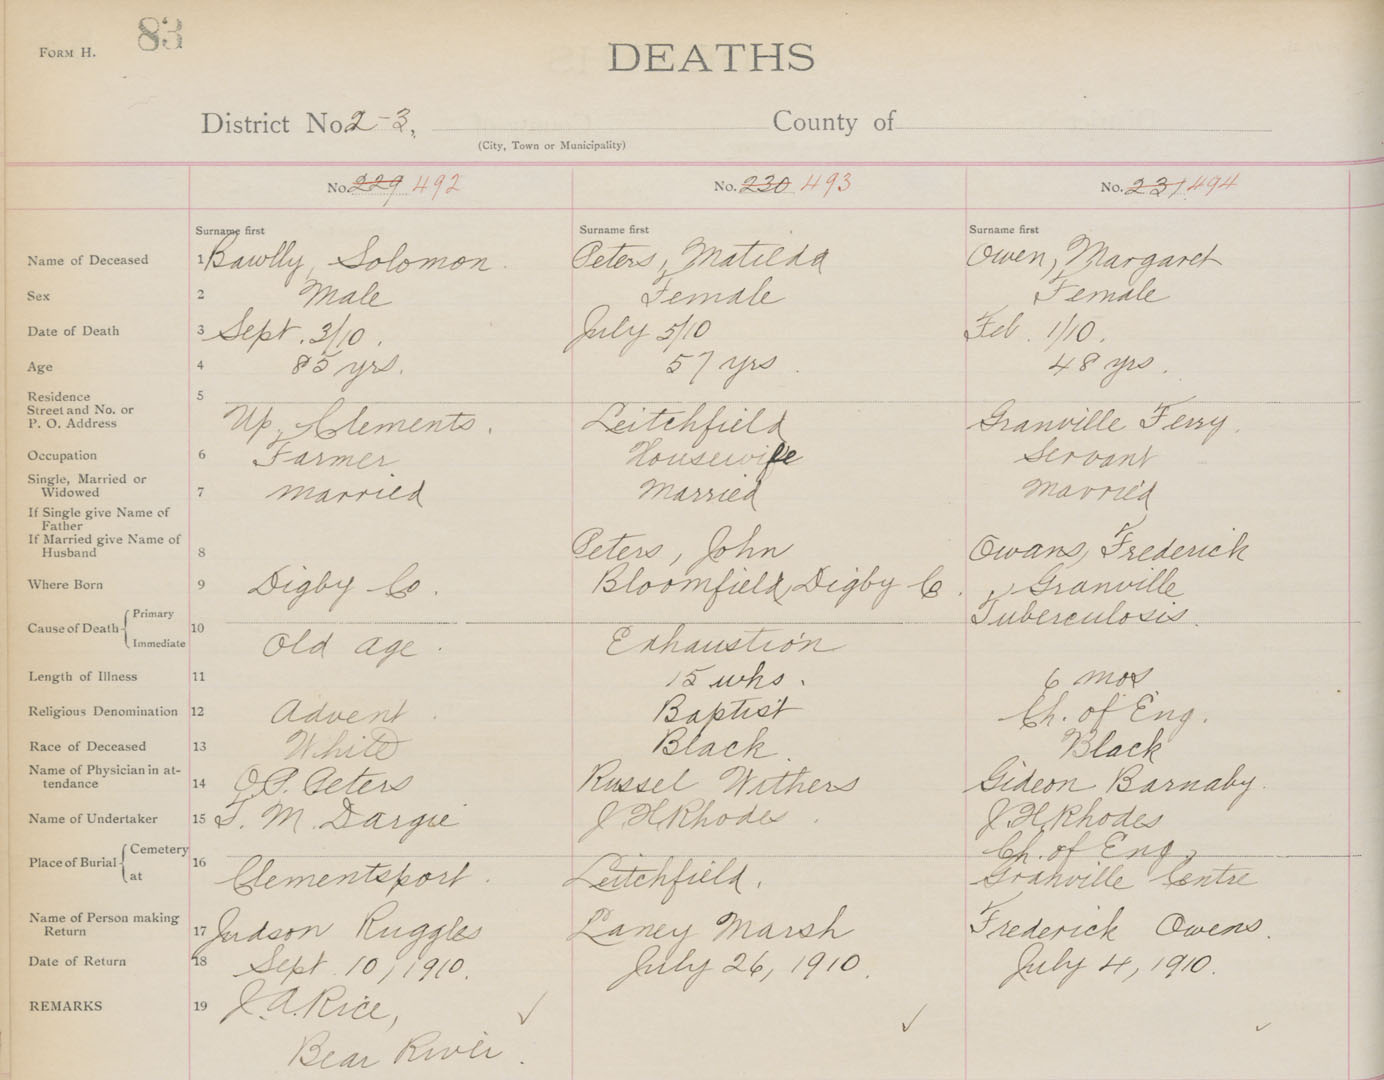 83
FORM H.
DEATHS
District No. 2-3, County of
(City, Town or Municipality)
No. 229 492 No. 230 493 No. 231 494
Surname first Surname first Surname first
Name of Deceased 1 Bawlly, Solomon. Peters, Matilda Owen, Margaret
Sex 2 Male Female Female
Date of Death 3 Sept. 3/10. July 5/10 Feb. 1/10.
Age 4 85 yrs. 57 yrs. 48 yrs.
Residence 5
Street and No. or
P. O. Address Up. Clements. Leitchfield Granville Ferry.
Occupation 6 Farmer Housewife Servant
Single, Married or
Widowed 7 married Married Married
If Single give Name of
Father
If Married give Name of
Husband 8 Peters, John Owans, Frederick
Where Born 9 Digby Co. Bloomfield, Digby C. Granville
Cause of Death { Primary 10 Tuberculosis.
Immediate Old age. Exhaustion
Length of Illness 11 15 wks. 6 mos
Religious Denomination 12 Advent. Baptist Ch. of Eng.
Race of Deceased 13 White Black Black
Name of Physician in at-
tendance 14 Peters Russel Withers Gideon Barnaby.
Name of Undertaker 15 M. Dargie J. H Rhodes. J H Rhodes
Place of Burial { Cemetery 16 Ch. of Eng,
at Clementsport. Leitchfield. Granville Centre
Name of Person making
Return 17 Judson Ruggles Laney Marsh Frederick Owens.
Date of Return 18 Sept 10, 1910. July 26, 1910. July 4, 1910.
REMARKS 19 J. A. Rice,
Bear River.